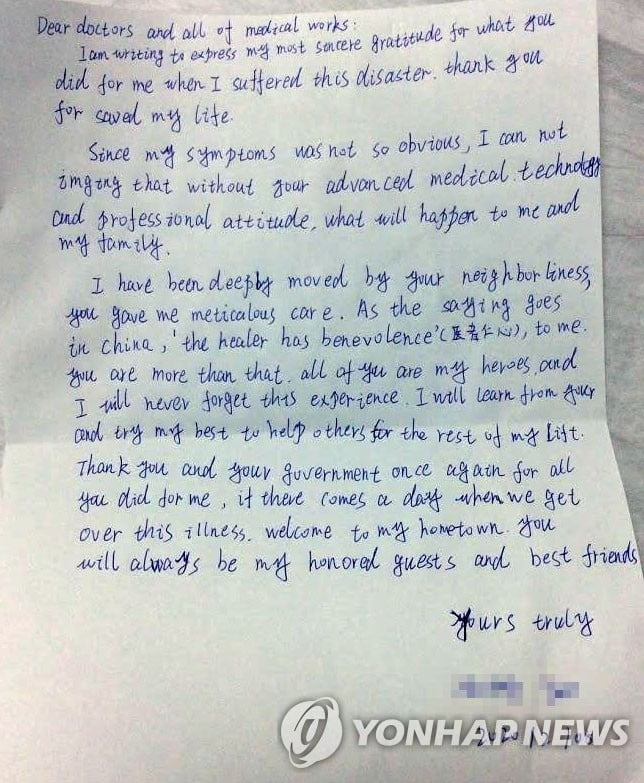 Dear doctors and all of medical works:
I am writing to express my most sencere gratitude for what you
did for me when I suffered this disaster. thank you
for saved my life.
Since my symptoms was not so obvious, I can not
imging that without your advanced medical technology
and professional attitude, what will happen to me and
my family.
I have been deeply moved by your neighborliness,
you gave me meticalous care. As the saying goes
in china, 'the healer has benevolence' (医者仁心), to me.
you are more than that. all of you are my heroes, and
I will never forget this experience. I will learn from your
and try my best to help others for the rest of my lift.
Thank you and your government once again for all
you did for me, if there comes a day when we get
over this illness. welcome to my hometown. you
will always be my honored guests and best friends
yours truly
YONHAP NEWS
2020